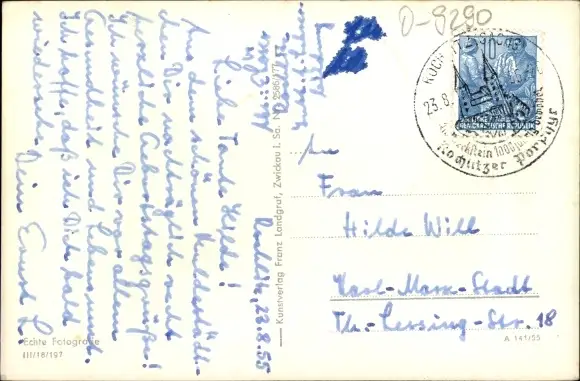 D-9290
ROCHLITZ (SACHS)
23.8.
Rochlitzer Porphyr
DEUTSCHE DEMOKRATISCHE REPUBLIK
Rochlitz, 23.8.55
Liebe Tante Hilde!
Aus dem schönen Muldestädt-
chen Dir nachträglich recht
herzliche Geburtstagsgrüße!
Ich wünsche Dir vor allem
Gesundheit und Lebensmut.
Ich hoffe, daß ich Dich bald
wiedersehe. Dein Ernst L.
Echte Fotografie
III/18/197
Kunstverlag Franz Landgraf, Zwickau i. Sa.
An
Frau
Hilde Will
Karl-Marx-Stadt
Th.-Lessing-Str. 18
A 141/55